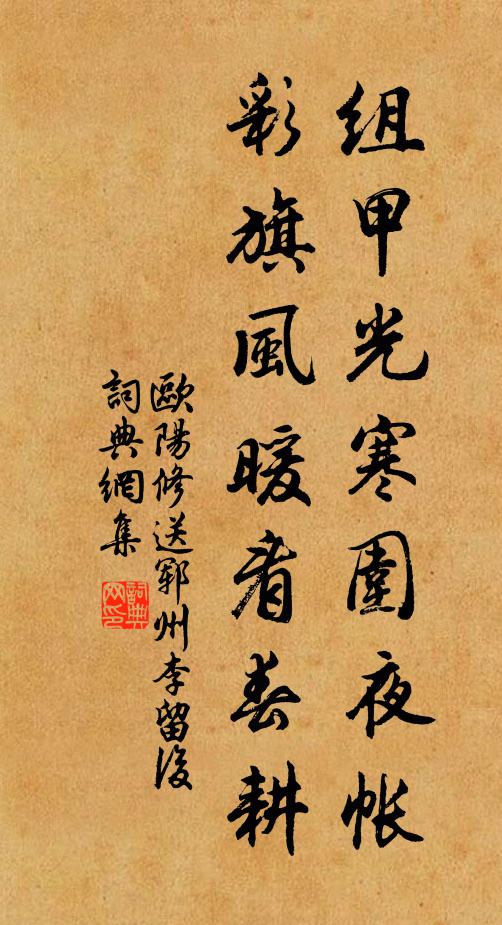 組甲光寒圍夜帳
彩旗風暖看春耕
歐陽修送鄆州李留後
詞典網集
詞典
网印